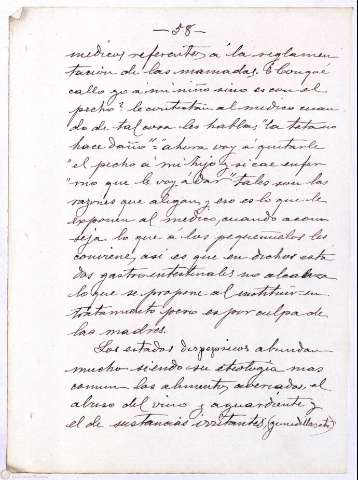 — 58 —
medicos referentes á la reglamen
tacion de las mamadas. ¿Conque
callo yo a mi niño sino es con el
pecho? le contestan al medico cuan
do de tal cosa les habla; "la teta no
hace daño" = "ahora voy á quitarle
"el pecho á mi hijo y si cae enfer
"mo que le voy á dar" tales son las
razones que alegan y eso es lo que le
exponen al medico, cuando acon
seja lo que á los pequeñuelos les
conviene, asi es que en dichos esta
dos gastro-intestinales no alcanza
lo que se propone al instituir un
tratamiento pero es por culpa de
las madres.
Los estados dispepsicos abundan
mucho siendo su etiologia mas
comun los alimentos averiados, el
abuso del vino y aguardiente y
el de sustancias irritantes,